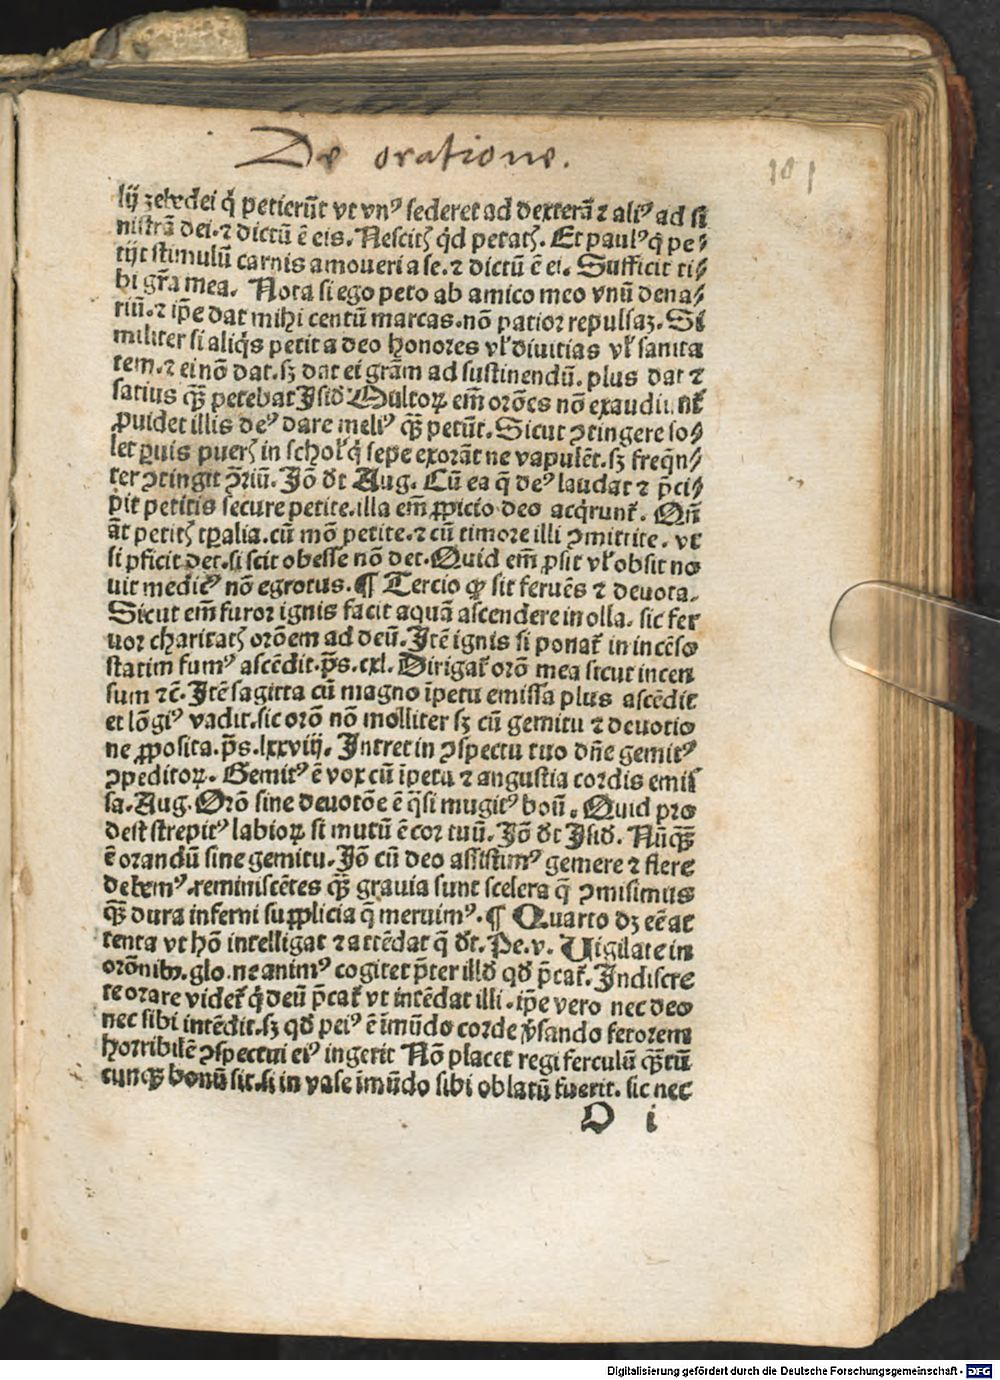 De oratione.
101
lij zebedei q̇ petierūt vt vnꝰ sederet ad dexterā ⁊ aliꝰ ad si
nistrā dei. ⁊ dictū ē eis. Nescitꝭ qd petatꝭ. Et paulꝰ q̇ pe⸗
tijt stimulū carnis amoueri a se. ⁊ dictū ē ei. Sufficit ti⸗
bi gr̄a mea. Nota si ego peto ab amico meo vnū dena⸗
riū. ⁊ ip̄e dat mihi centū marcas. nō patior repulsaꝫ. Si
militer si aliq̇s petit a deo honores vl̓ diuitias vl̓ sanita
tem. ⁊ ei nō dat. sꝫ dat ei grām ad sustinendū. plus dat ⁊
satius qꝫ̄ petebat Jsid̓ Multoꝝ em̄ orōes nō exaudiunt̓
ꝓuidet illis deꝰ dare meliꝰ qꝫ̄ petūt. Sicut ꝯtingere so⸗
let ꝑuis puerꝭ in schol̓ q̇ sepe exorāt ne vapulēt. sꝫ freq̄n⸗
ter ꝯtingit ꝯ̄riū. Jō d̓t Aug. Cū ea q̄ deꝰ laudat ⁊ p̄ci⸗
pit petitis secure petite. illa em̄ ꝓpicio deo acq̇runt̓. Qn̄
āt petitꝭ tꝑalia. cū mō petite. ⁊ cū timore illi ꝯmittite. vt
si ꝓficit det. si scit obesse nō det. Quid em̄ ꝓsit vl̓ obsit no
uit medicꝰ nō egrotus. ¶ Tercio qꝫ sit feruēs ⁊ deuota.
Sicut em̄ furor ignis facit aquā ascendere in olla. sic fer
uor charitatꝭ orōem ad deū. Jtē ignis si ponat̓ in incēso
statim fumꝰ ascēdit. p̄s. cxl. Dirigat̓ orō mea sicut incen
sum ⁊c̄. Jtē sagitta cū magno īpetu emissa plus ascēdit
et lōgiꝰ vadit. sic orō nō molliter sꝫ cū gemitu ⁊ deuotio
ne ꝓposita. p̄s. lxxviij. Jntret in ꝯspectu tuo dn̄e gemitꝰ
ꝯpeditoꝝ. Gemitꝰ ē vox cū īpetu ⁊ angustia cordis emis
sa. Aug. Orō sine deuotōe ē q̄si mugitꝰ boū. Quid pro
dest strepitꝰ labioꝝ si mutū ē cor tuū. Jō d̓t Jsid̓. Nūqꝫ̄
ē orandū sine gemitu. Jō cū deo assistimꝰ gemere ⁊ flere
debemꝰ. reminiscētes qꝫ̄ grauia sunt scelera q̄ ꝯmisimus
qꝫ̄ dura inferni supplicia q̄ meruimꝰ. ¶ Quarto dꝫ eē at
tenta vt hō intelligat ⁊ attēdat q̄ d̓t. Pe. v. Uigilate in
orōnibꝰ. glo. ne animꝰ cogitet p̄ter illd̓ qd̓ p̄cat̓. Jndiscre
te orare videt̓ q̇ deū p̄cat̓ vt intēdat illi. ip̄e vero nec deo
nec sibi intēdit. sꝫ qd̓ peiꝰ ē īmūdo corde v̓sando fetorem
horribilē ꝯspectui eiꝰ ingerit Nō placet regi ferculū qꝫ̄tū
cunqꝫ bonū sit. si in vase īmūdo sibi oblatū fuerit. sic nec
O i
Digitalisierung gefördert durch die Deutsche Forschungsgemeinschaft - DFG